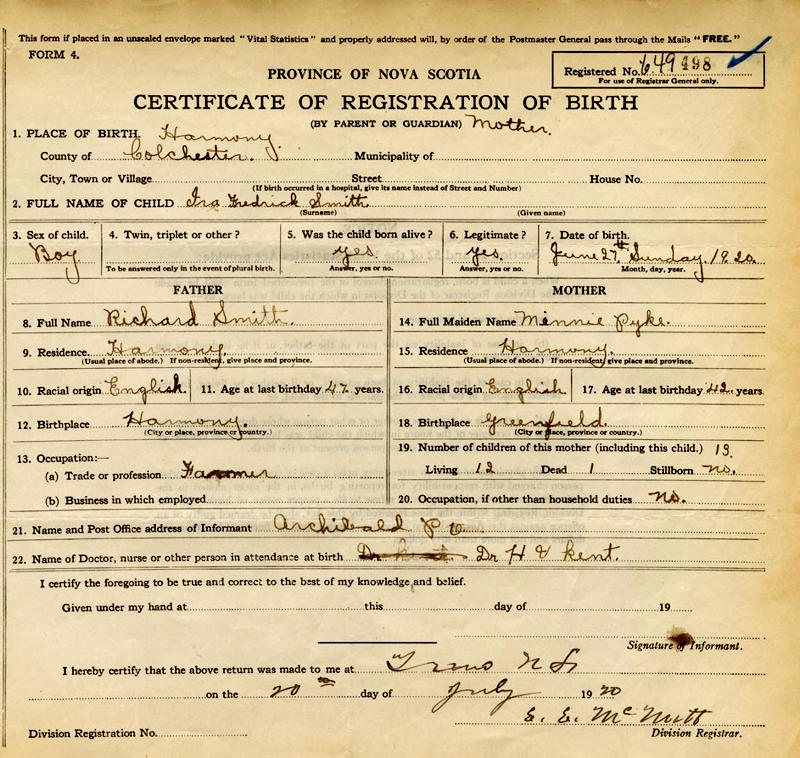 This form if placed in an unsealed envelope marked "Vital Statistics" and properly addressed will, by order of the Postmaster General pass through the Mails "FREE."
FORM 4.
Registered No. 649498
For use of Registrar General only.
PROVINCE OF NOVA SCOTIA
CERTIFICATE OF REGISTRATION OF BIRTH
(BY PARENT OR GUARDIAN) Mother.
1. PLACE OF BIRTH. Harmony.
County of Colchester. Municipality of
City, Town or Village Street House No.
(If birth occurred in a hospital, give its name instead of Street and Number)
2. FULL NAME OF CHILD Ira Fredrick Smith
(Surname) (Given name)
3. Sex of child. 4. Twin, triplet or other ? 5. Was the child born alive ? 6. Legitimate ? 7. Date of birth.
Boy yes. yes. June 27th Sunday. 1920.
To be answered only in the event of plural birth. Answer, yes or no. Answer, yes or no. Month, day, year.
FATHER MOTHER
8. Full Name Richard Smith. 14. Full Maiden Name Mennie Pyke.
9. Residence. Harmony. 15. Residence Harmony.
(Usual place of abode.) If non-resident, give place and province. (Usual place of abode.) If non-resident, give place and province.
10. Racial origin English 11. Age at last birthday 47 years. 16. Racial origin English 17. Age at last birthday 42 years
12. Birthplace Harmony. 18. Birthplace Greenfield.
(City or place, province or country.) (City or place, province or country.)
13. Occupation:— 19. Number of children of this mother (including this child.) 13.
(a) Trade or profession Farmer Living 12 Dead 1 Stillborn no.
(b) Business in which employed 20. Occupation, if other than household duties no.
21. Name and Post Office address of Informant Archibald P O
22. Name of Doctor, nurse or other person in attendance at birth Dr H V Kent.
I certify the foregoing to be true and correct to the best of my knowledge and belief.
Given under my hand at this day of 19
Signature of Informant.
I hereby certify that the above return was made to me at Truro N S
on the 20th day of July 1920
E. E. McNutt
Division Registration No. Division Registrar.